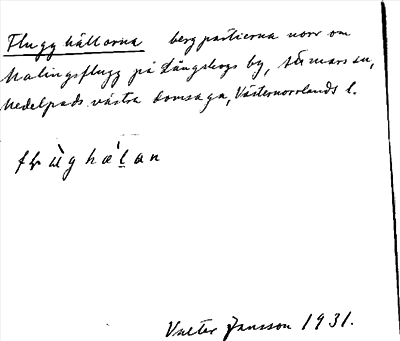 Flugghällorna bergpartierna norr om
Malingsflugg på Långskogs by, Stömars sn,
Medelpads västra domsaga, Västernorrlands l.
Valter Jansson 1931.